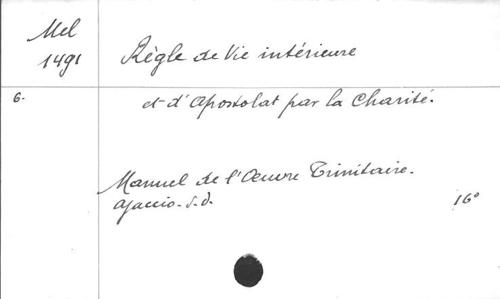 Mel
1491
Règle de Vie intérieure
6.
et d'Apostolat par la Charité.
Manuel de l'Œuvre Trinitaire.
Ajaccio - s.d.
16°